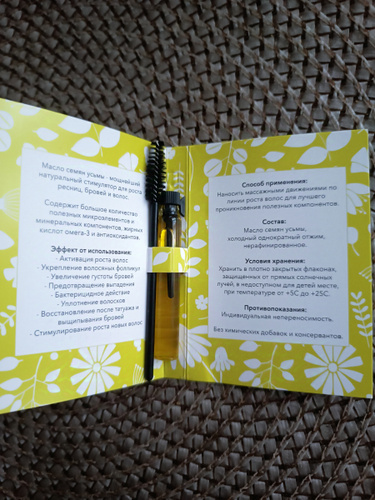 Масло семен усьмы - мощнейший
натуральный стимулятор для роста
ресниц, бровей и волос.
Содержит большое количество
полезных микроэлементов и
минеральных компонентов, жирных
кислот омега-3 и антиоксидантов.
Эффект от использования:
- Активация роста волос
- Укрепление волосяных фолликул
- Увеличение густоты бровей
- Предотвращение выпадения
- Бактерицидное действие
- Уплотнение волосков
- Восстановление после татуажа и
выщипывания бровей
- Стимулирование роста новых волос
Способ применения:
Наносить массажными движениями по
линии роста волос для лучшего
проникновения полезных компонентов.
Состав:
Масло семен усьмы,
холодный однократный отжим,
нерафинированное.
Условия хранения:
Хранить в плотно закрытых флаконах,
защищенных от прямых солнечных
лучей, в недоступном для детей месте,
при температуре от +5С до +25С.
Противопоказания:
Индивидуальная непереносимость.
Без химических добавок и консервантов.